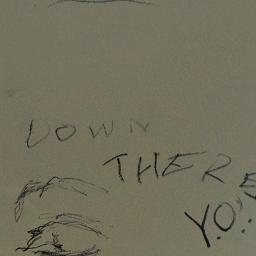 DOWN
THERE